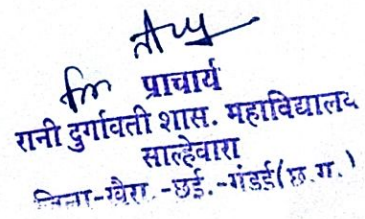 for प्राचार्य
रानी दुर्गावती शास. महाविद्यालय
साल्हेवारा
जिला-खैरा.-छुई.-गंडई(छ.ग.)